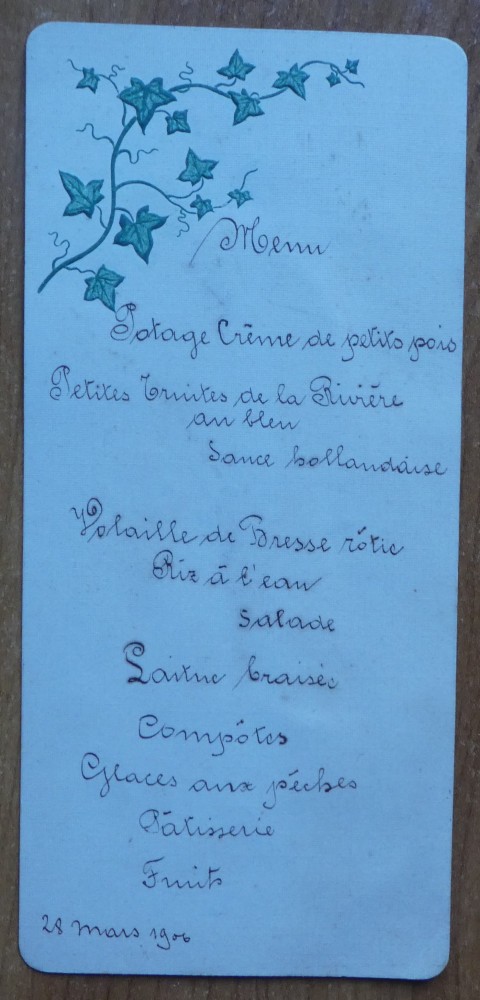 Menu
Potage Crême de petits pois
Petites Truites de la Rivière
au bleu
Sauce hollandaise
Volaille de Bresse rôtie
Riz à l'eau
Salade
Laitue braisée
Compôtes
Glaces aux pêches
Pâtisserie
Fruits
28 mars 1906